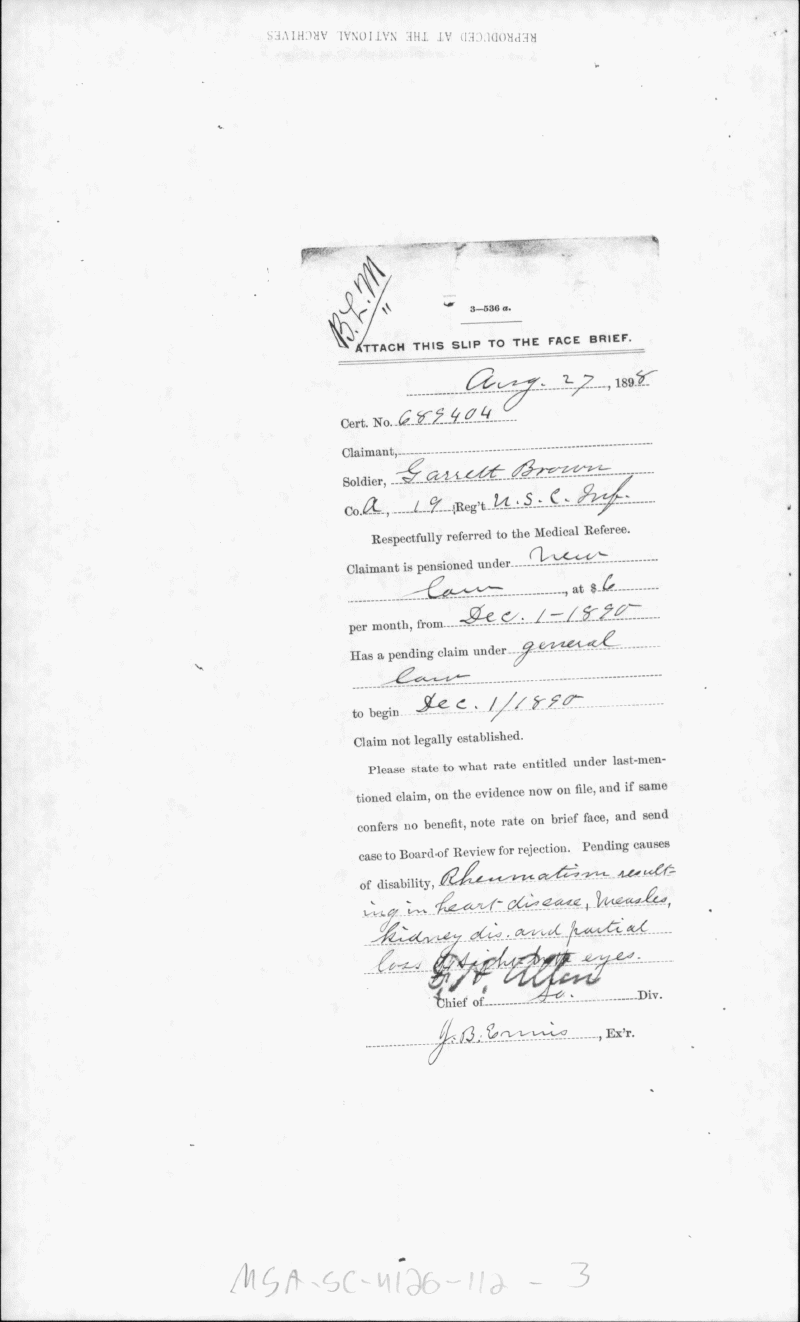 REPRODUCED AT THE NATIONAL ARCHIVES
B.L.M
3—536 a.
ATTACH THIS SLIP TO THE FACE BRIEF.
Aug. 27, 1898
Cert. No. 689404
Claimant,
Soldier, Garrett Brown
Co. A, 19 Reg't U.S.C. Inf.
Respectfully referred to the Medical Referee.
Claimant is pensioned under New
law, at $ 6
per month, from Dec. 1-1890
Has a pending claim under general
law
to begin Dec. 1/1890
Claim not legally established.
Please state to what rate entitled under last-men-
tioned claim, on the evidence now on file, and if same
confers no benefit, note rate on brief face, and send
case to Board of Review for rejection. Pending causes
of disability, Rheumatism result-
ing in heart disease, Measles,
kidney dis. and partial
loss of sight both eyes.
Allen
Chief of So. Div.
J.B. Ennis, Ex'r.
MSA-SC-4126-112-3